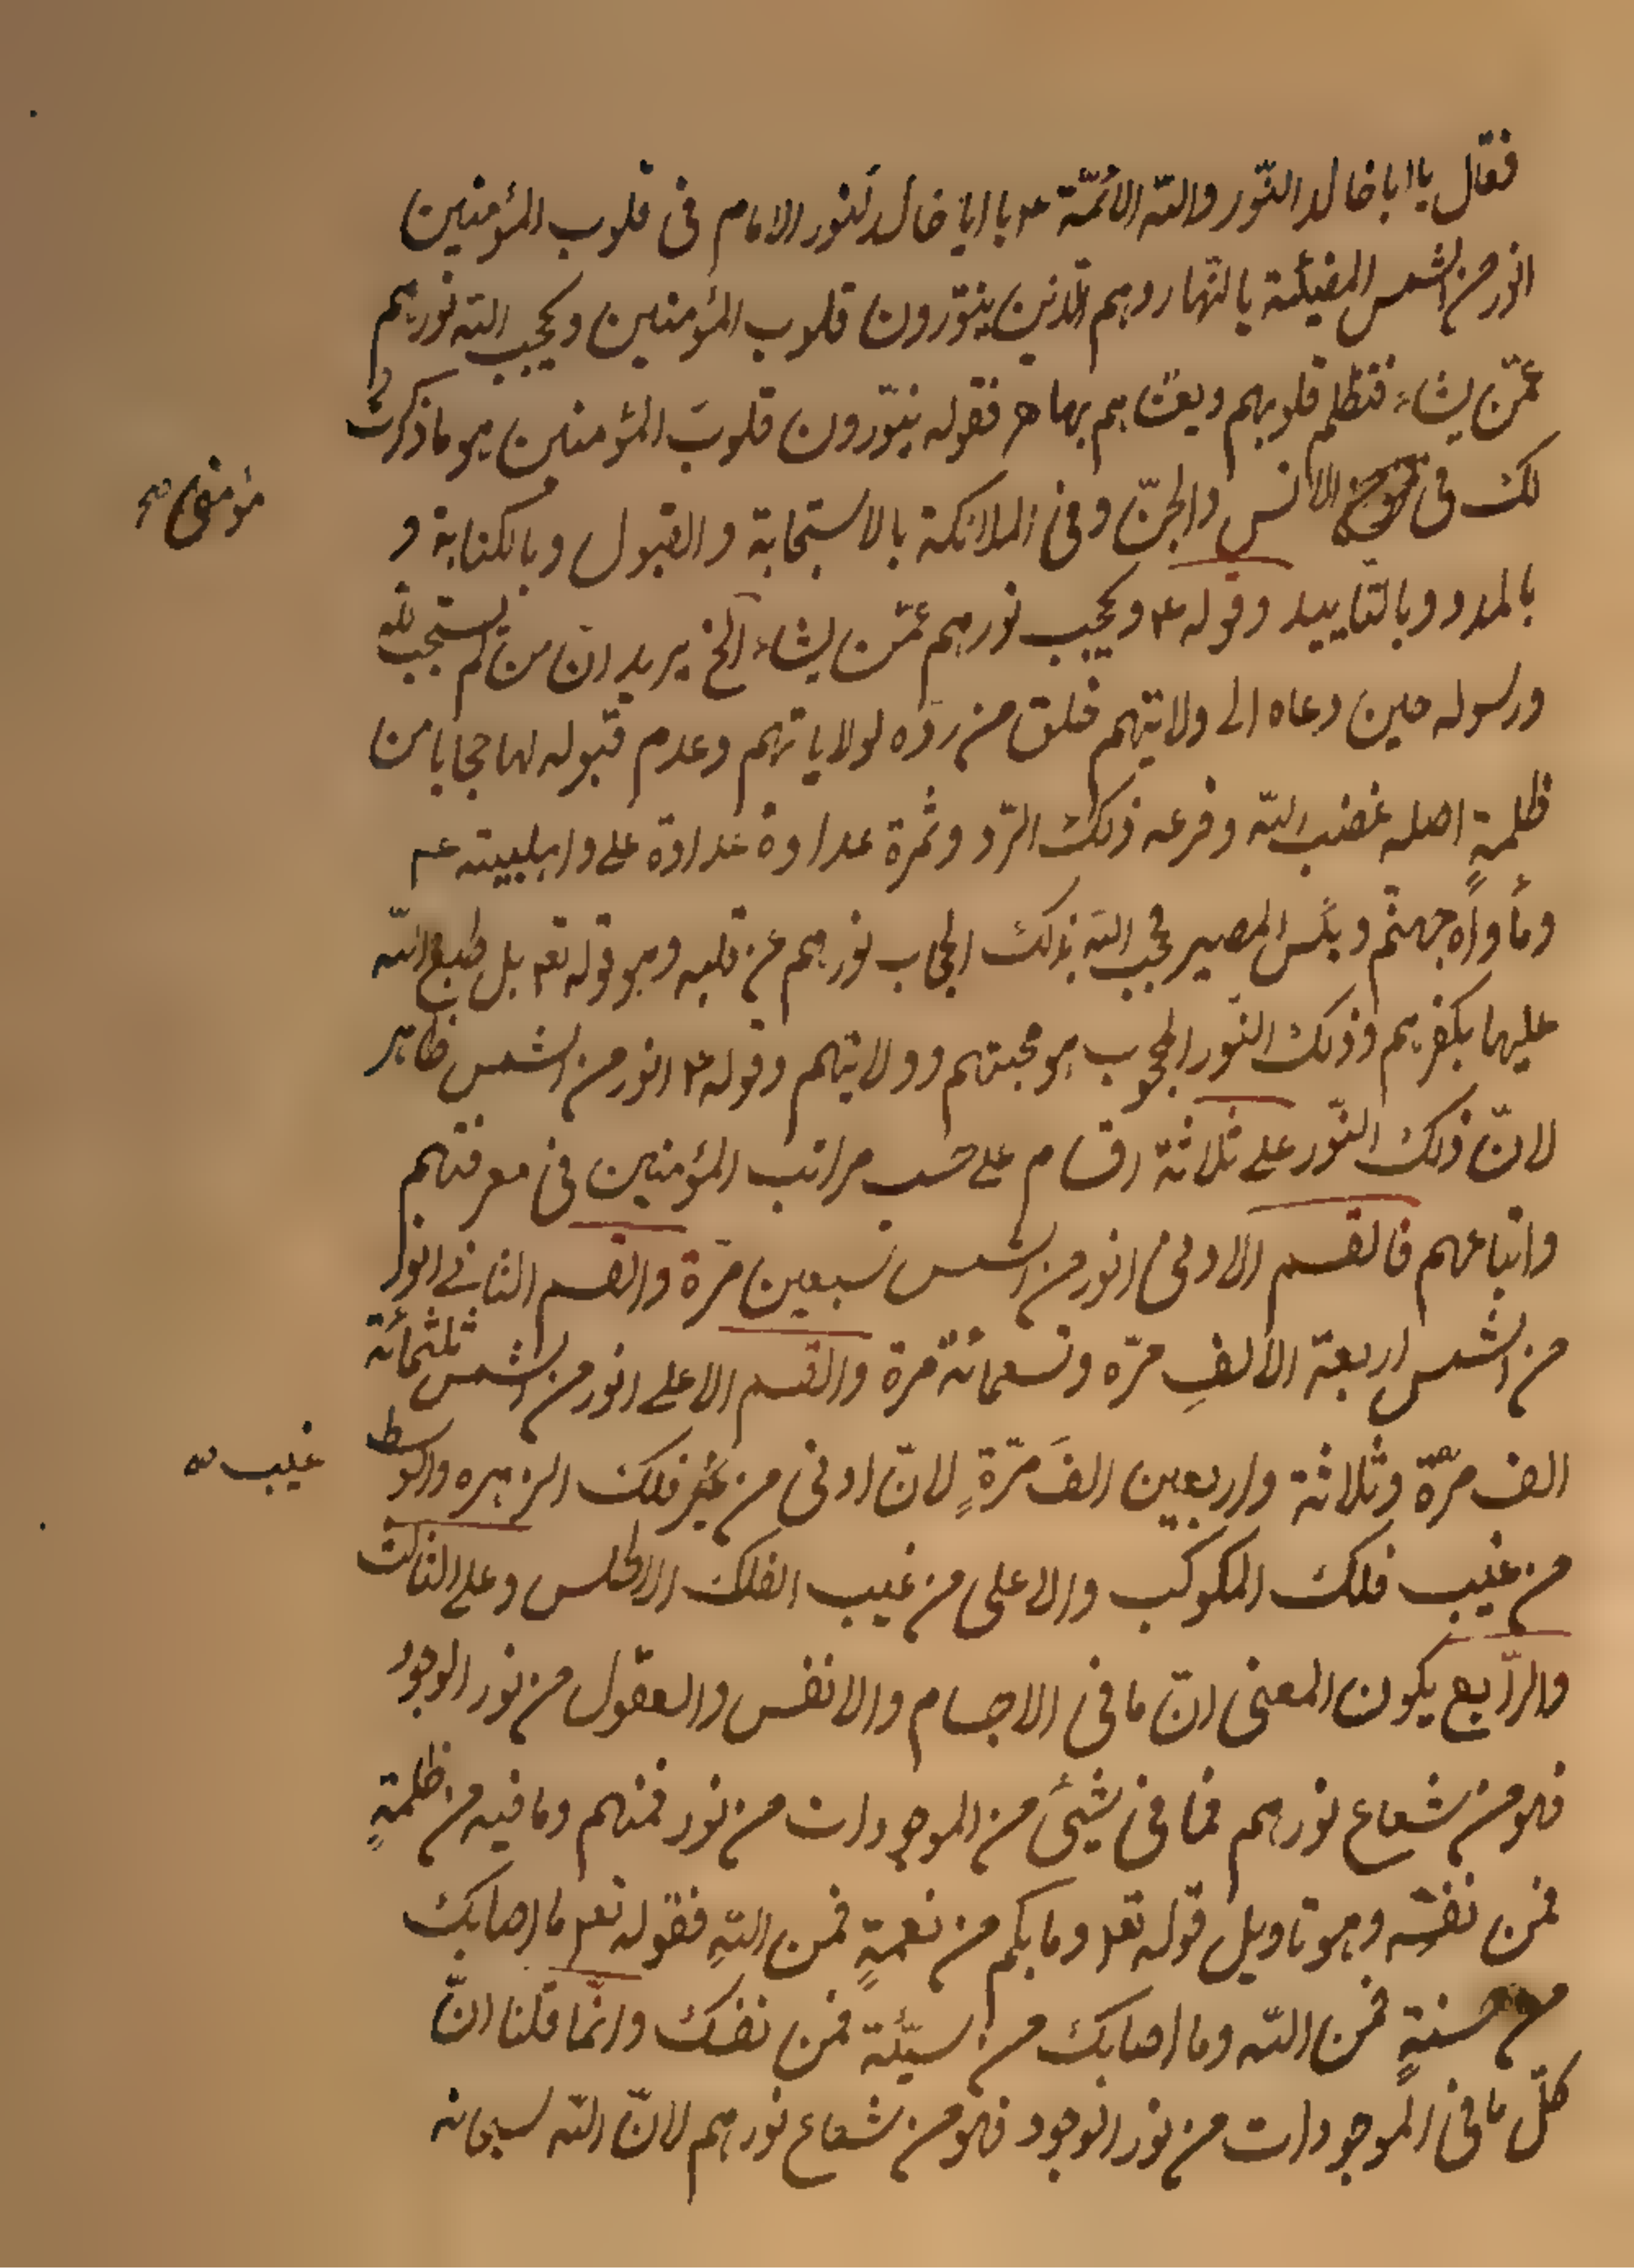 فقال يا ابا خالد النّور والله الائمّة ع يا ابا خالد لَنور الامام فى قلوب المؤمنين
انور من الشمس المضيئة بالنّهار وهم الّذين ينوّرون قلوب المؤمنين ويحجب الله نورهم
عمّن يشاء فتظلم قلوبهم ويغشاهم بها هـ فقوله ينوّرون قلوبَ المؤمنين هو ما ذكرتُ
لك فى الانس والجنّ وفى الملائكة بالاستجابة والقبول وبالكتابة و
بالمدد وبالتاييد وقوله ع ويحجب نورهم عمّن يشاء الخ يريد انّ من لم يستجب لله
ورسوله حين دعاه الى ولايتهم خلق من ردّه لولاياتهم وعدم قبوله لها حجابا من
ظلمةٍ اصله غضب الله وفرعه ذلك الرّد وثمرة عداوة عداوة على واهلبيته عم
ومأواه جهنّم وبئس المصير فحجب الله بذلك الحجاب نورهم عن قلبه وهو قوله تعـ بل طبع الله
عليها بكفرهم وذلك النّور المحجوب هو محبتهم وولايتهم وقوله ع انور من الشمس ظاهر
لانّ ذلك النّور على ثلاثة اقسام على حسب مراتب المؤمنين فى معرفتهم
واتباعهم فالقسم الادنى انور من الشمس سبعين مرّة والقسم الثانى انور
من الشمس اربعة الالفِ مرّه وتسعمائة مرة والقسم الاعلى انور من الشمس ثلثمائة
الف مرّة وثلاثة واربعين الفَ مرّةٍ لانّ ادنى من غير فلك الزهره والوسط
من غيب فلك المكوكب والاعلى من غيب الفلك الاطلس وعلى الثالث
والرّابع يكون المعنى انّ ما فى الاجسام والانفس والعقول من نور الوجود
فهو من شعاع نورهم فما فى شيئ من الموجودات من نور فمنهم وما فيه من ظلمةٍ
فمن نفسه وهو تاويل قوله تعـ وما بكم من نعمةٍ فمن اللهِ فقوله تعـ ما اصابك
من حسنةٍ فمن الله وما اصابك من سيّئة فمن نفسك وانّما قلنا انّ
كلّ ما فى الموجودات من نور الوجود فهو من شعاع نورهم لانّ الله سبحانه
غيب